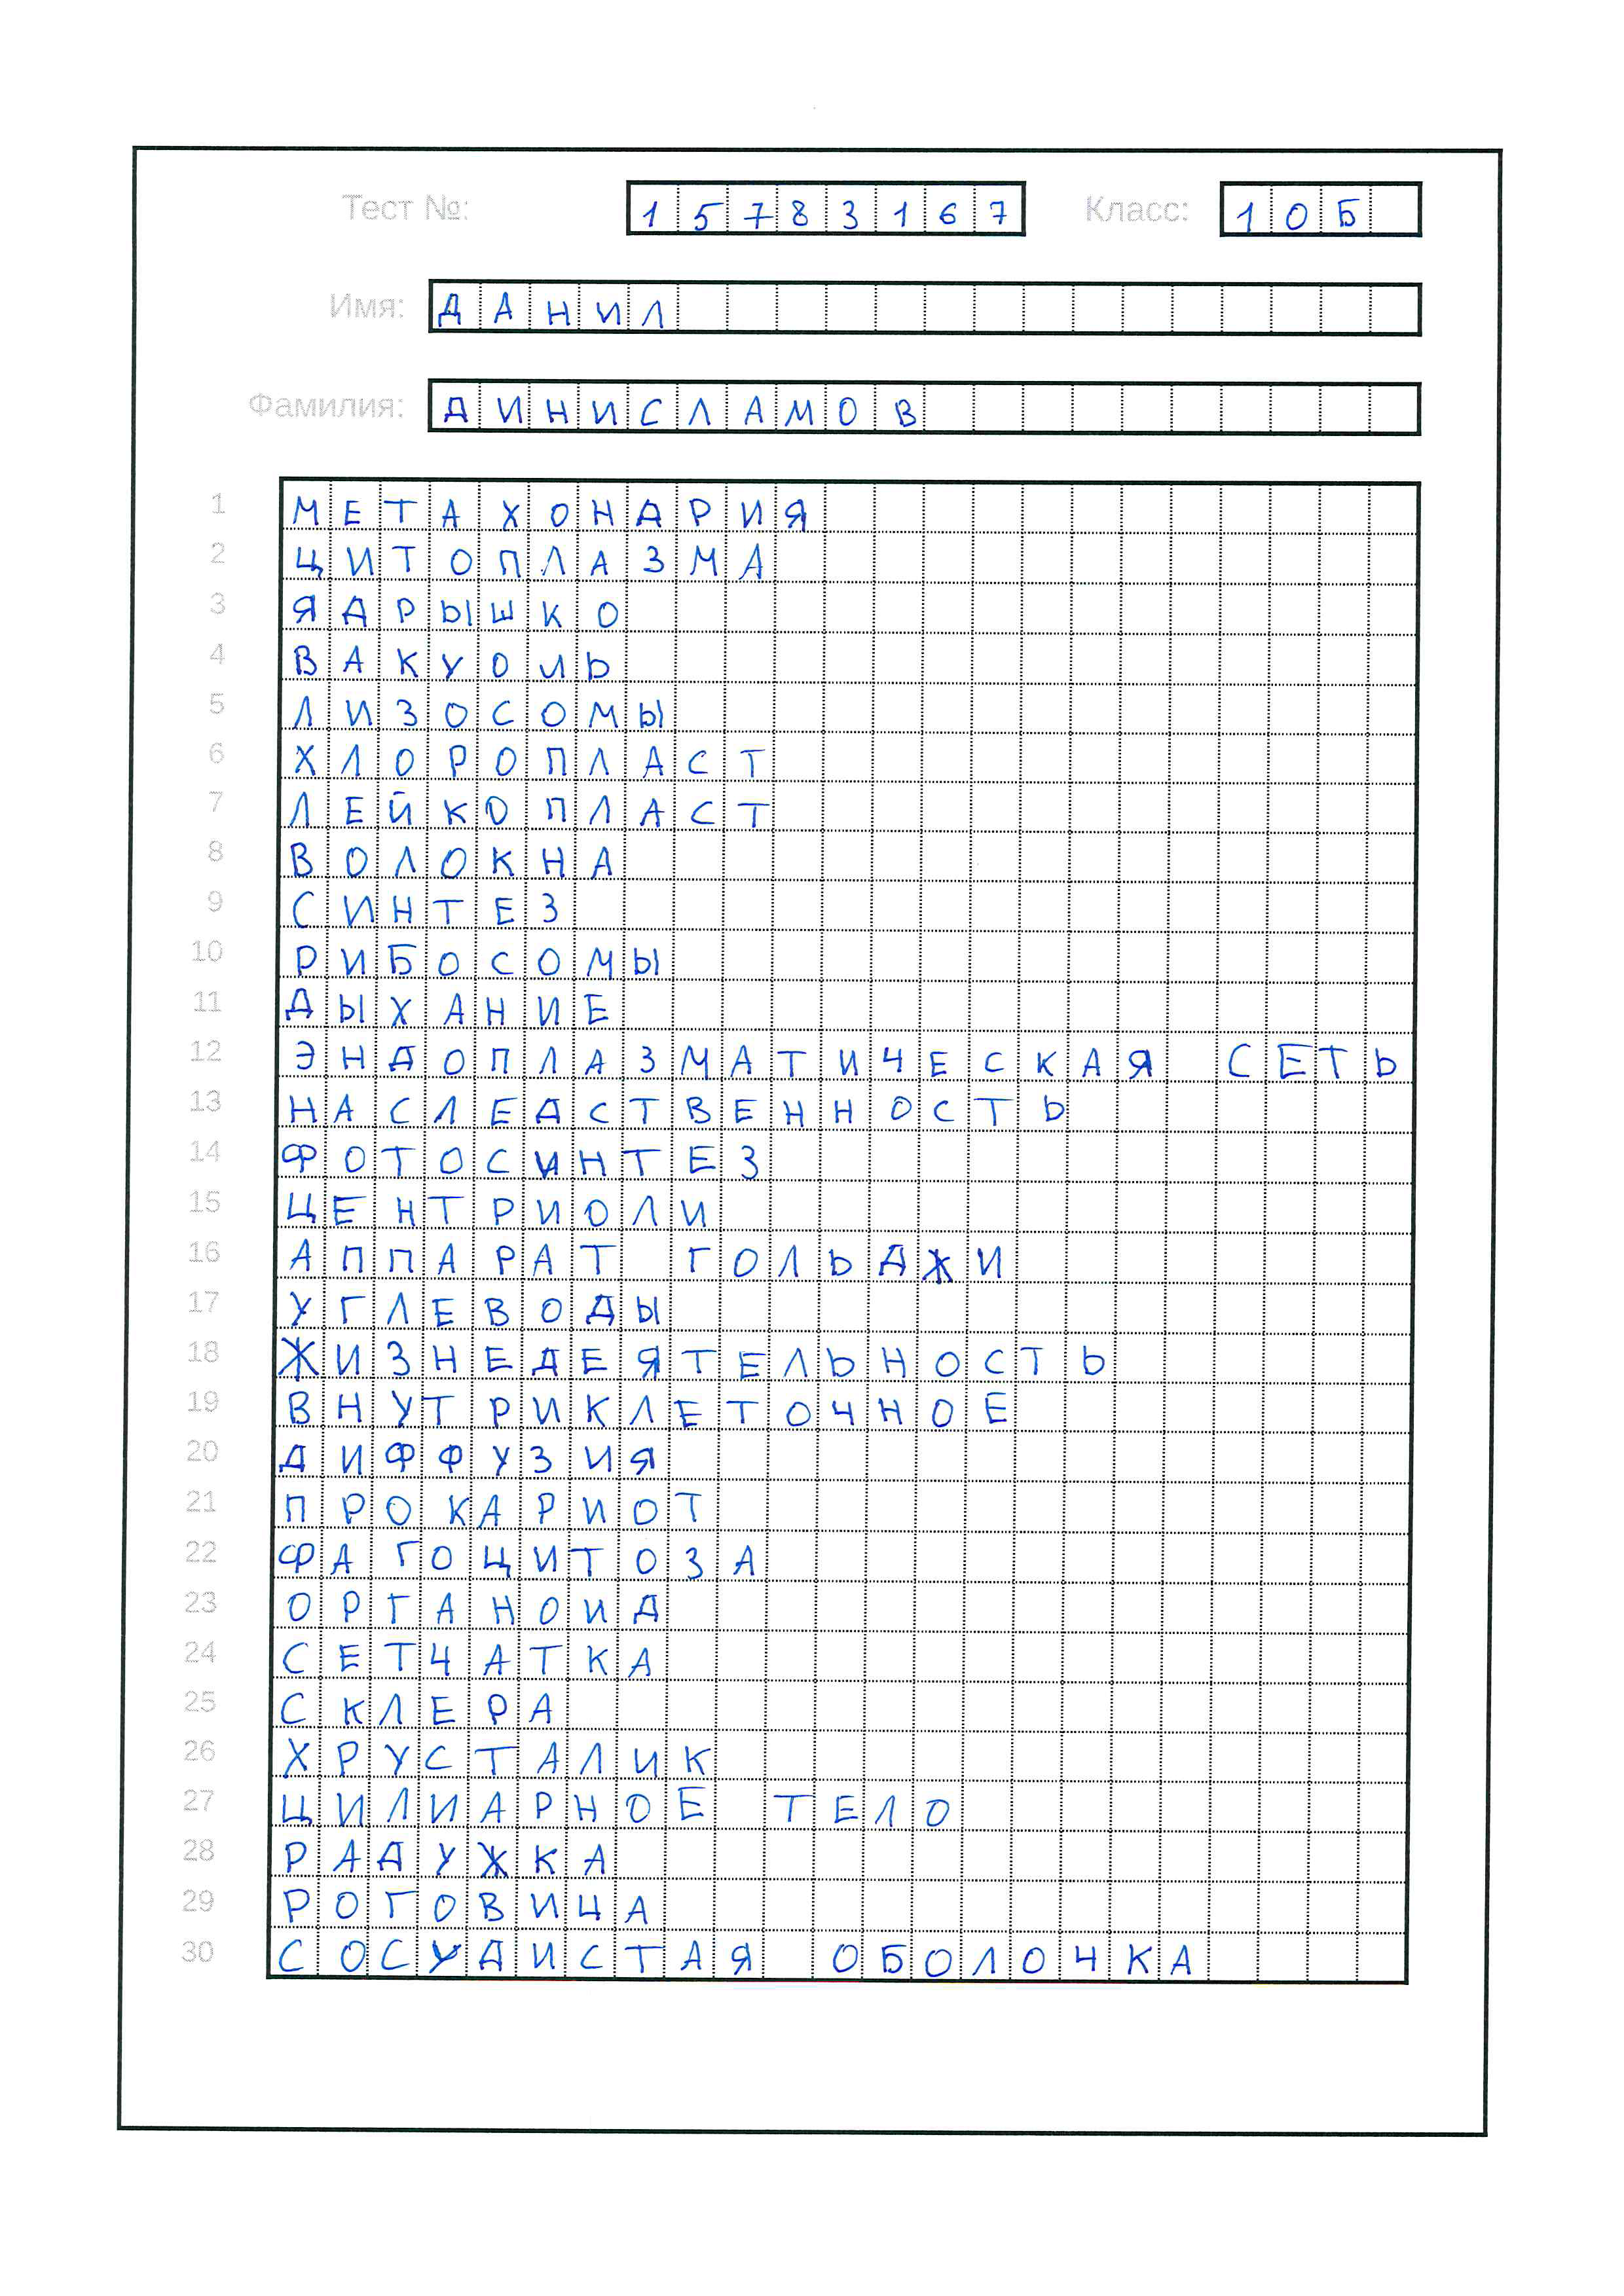 Тест №: 15783167 Класс: 10Б
Имя: ДАНИЛ
Фамилия: ДИНИСЛАМОВ
1 МЕТАХОНДРИЯ
2 ЦИТОПЛАЗМА
3 ЯДРЫШКО
4 ВАКУОЛЬ
5 ЛИЗОСОМЫ
6 ХЛОРОПЛАСТ
7 ЛЕЙКОПЛАСТ
8 ВОЛОКНА
9 СИНТЕЗ
10 РИБОСОМЫ
11 ДЫХАНИЕ
12 ЭНДОПЛАЗМАТИЧЕСКАЯ СЕТЬ
13 НАСЛЕДСТВЕННОСТЬ
14 ФОТОСИНТЕЗ
15 ЦЕНТРИОЛИ
16 АППАРАТ ГОЛЬДЖИ
17 УГЛЕВОДЫ
18 ЖИЗНЕДЕЯТЕЛЬНОСТЬ
19 ВНУТРИКЛЕТОЧНОЕ
20 ДИФФУЗИЯ
21 ПРОКАРИОТ
22 ФАГОЦИТОЗА
23 ОРГАНОИД
24 СЕТЧАТКА
25 СКЛЕРА
26 ХРУСТАЛИК
27 ЦИЛИАРНОЕ ТЕЛО
28 РАДУЖКА
29 РОГОВИЦА
30 СОСУДИСТАЯ ОБОЛОЧКА